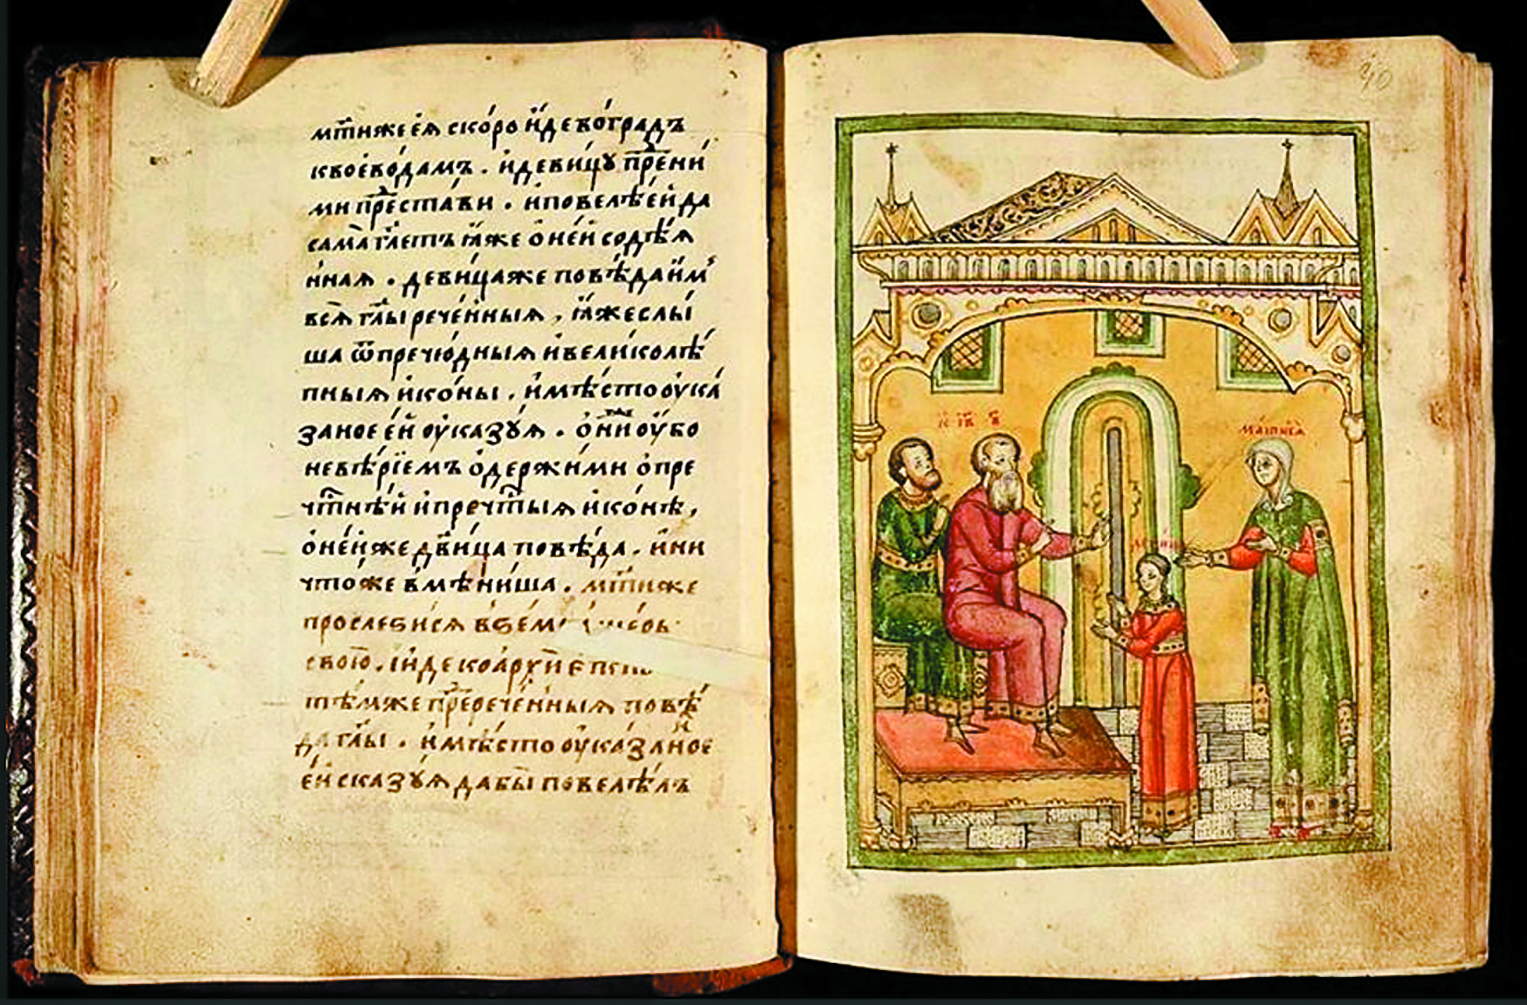 мт҃и же ея̀ ско́ро и҆́де во́градъ
к воево́дамъ . и҆ деви́цу пр҇е ни́
ми пр҇еста́ви . и҆ повелѣ̀ е҆́й да
сама̀ гл҃етъ ꙗ҆́же о҆ не́й содѣ́я
нная . деви́ца же повѣ́да и҆̀мъ
вся̀ гл҃ы рече́нныя , ꙗ҆́же слы́
ша ѿ пречю́дныя и҆ великолѣ́
пныя и҆ко́ны . и҆ мѣ́сто ѹ҆ка́
заное е҆́й ѹ҆казу́я . о҆ни́ ѹ҆́бо
невѣ́рїемъ ѻ҆держи́ми ѻ҆ пре
чт҇нѣ́й и҆ преч҇тыя и҆ко́нѣ ,
о҆ не́йже дв҃и́ца повѣ́да . и҆ ни
что́же вмѣни́ша . мт҃и же
прослези́ся взем
свою̀ . и҆́де ко а҆рхїеп
тѣ́мже пр҇ерече́нныя повѣ́
да гл҃ы . и҆ мѣ́сто ѹ҆ка́заное
е҆́й сказу́я дабы̀ повелѣ́лъ
40
мати е҆ѧ̀